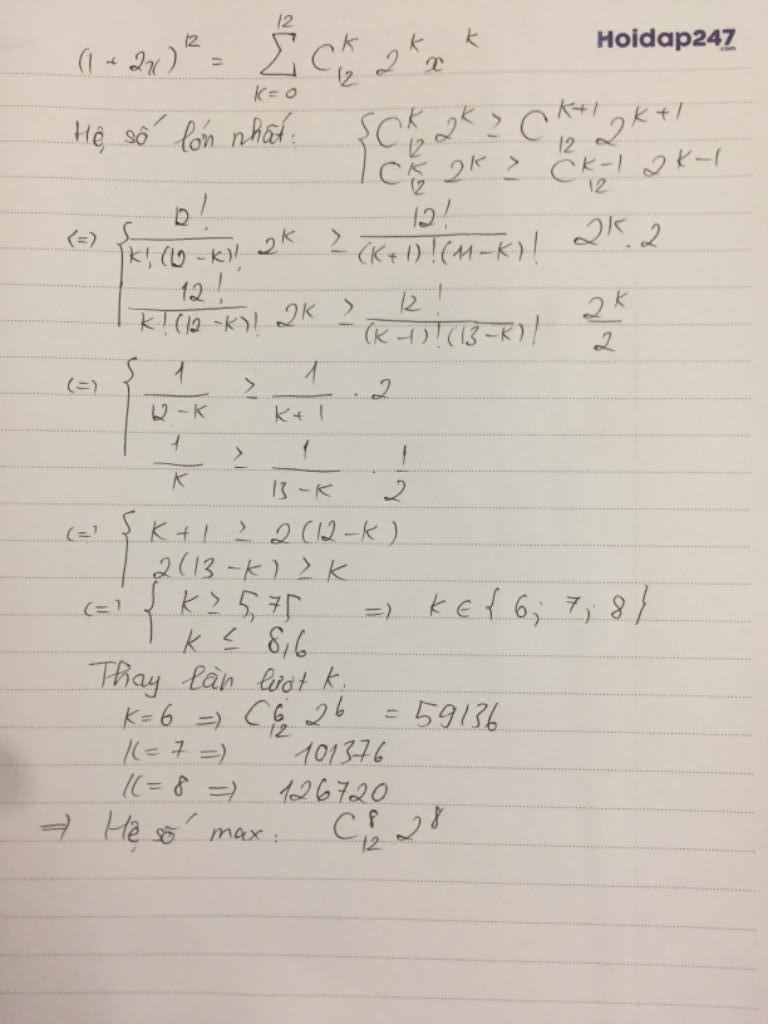 Hoidap247
.com
(1 + 2x)^12 = \sum_{K=0}^{12} C_{12}^{K} 2^K x^K
Hệ số lớn nhất: { C_{12}^{K} 2^K ≥ C_{12}^{K+1} 2^{K+1}
C_{12}^{K} 2^K ≥ C_{12}^{K-1} 2^{K-1}
(=) { \frac{12!}{K!(12-K)!} 2^K ≥ \frac{12!}{(K+1)!(11-K)!} 2^K . 2
\frac{12!}{K!(12-K)!} 2^K ≥ \frac{12!}{(K-1)!(13-K)!} \frac{2^K}{2}
(=) { \frac{1}{12-K} ≥ \frac{1}{K+1} . 2
\frac{1}{K} ≥ \frac{1}{13-K} . \frac{1}{2}
(=) { K+1 ≥ 2(12-K)
2(13-K) ≥ K
(=) { K ≥ 5,75 => K ∈ { 6; 7; 8 }
K ≤ 8,6
Thay lần lượt K.
K=6 => C_{12}^{6} 2^6 = 59136
K=7 => 101376
K=8 => 126720
=> Hệ số max: C_{12}^{8} 2^8